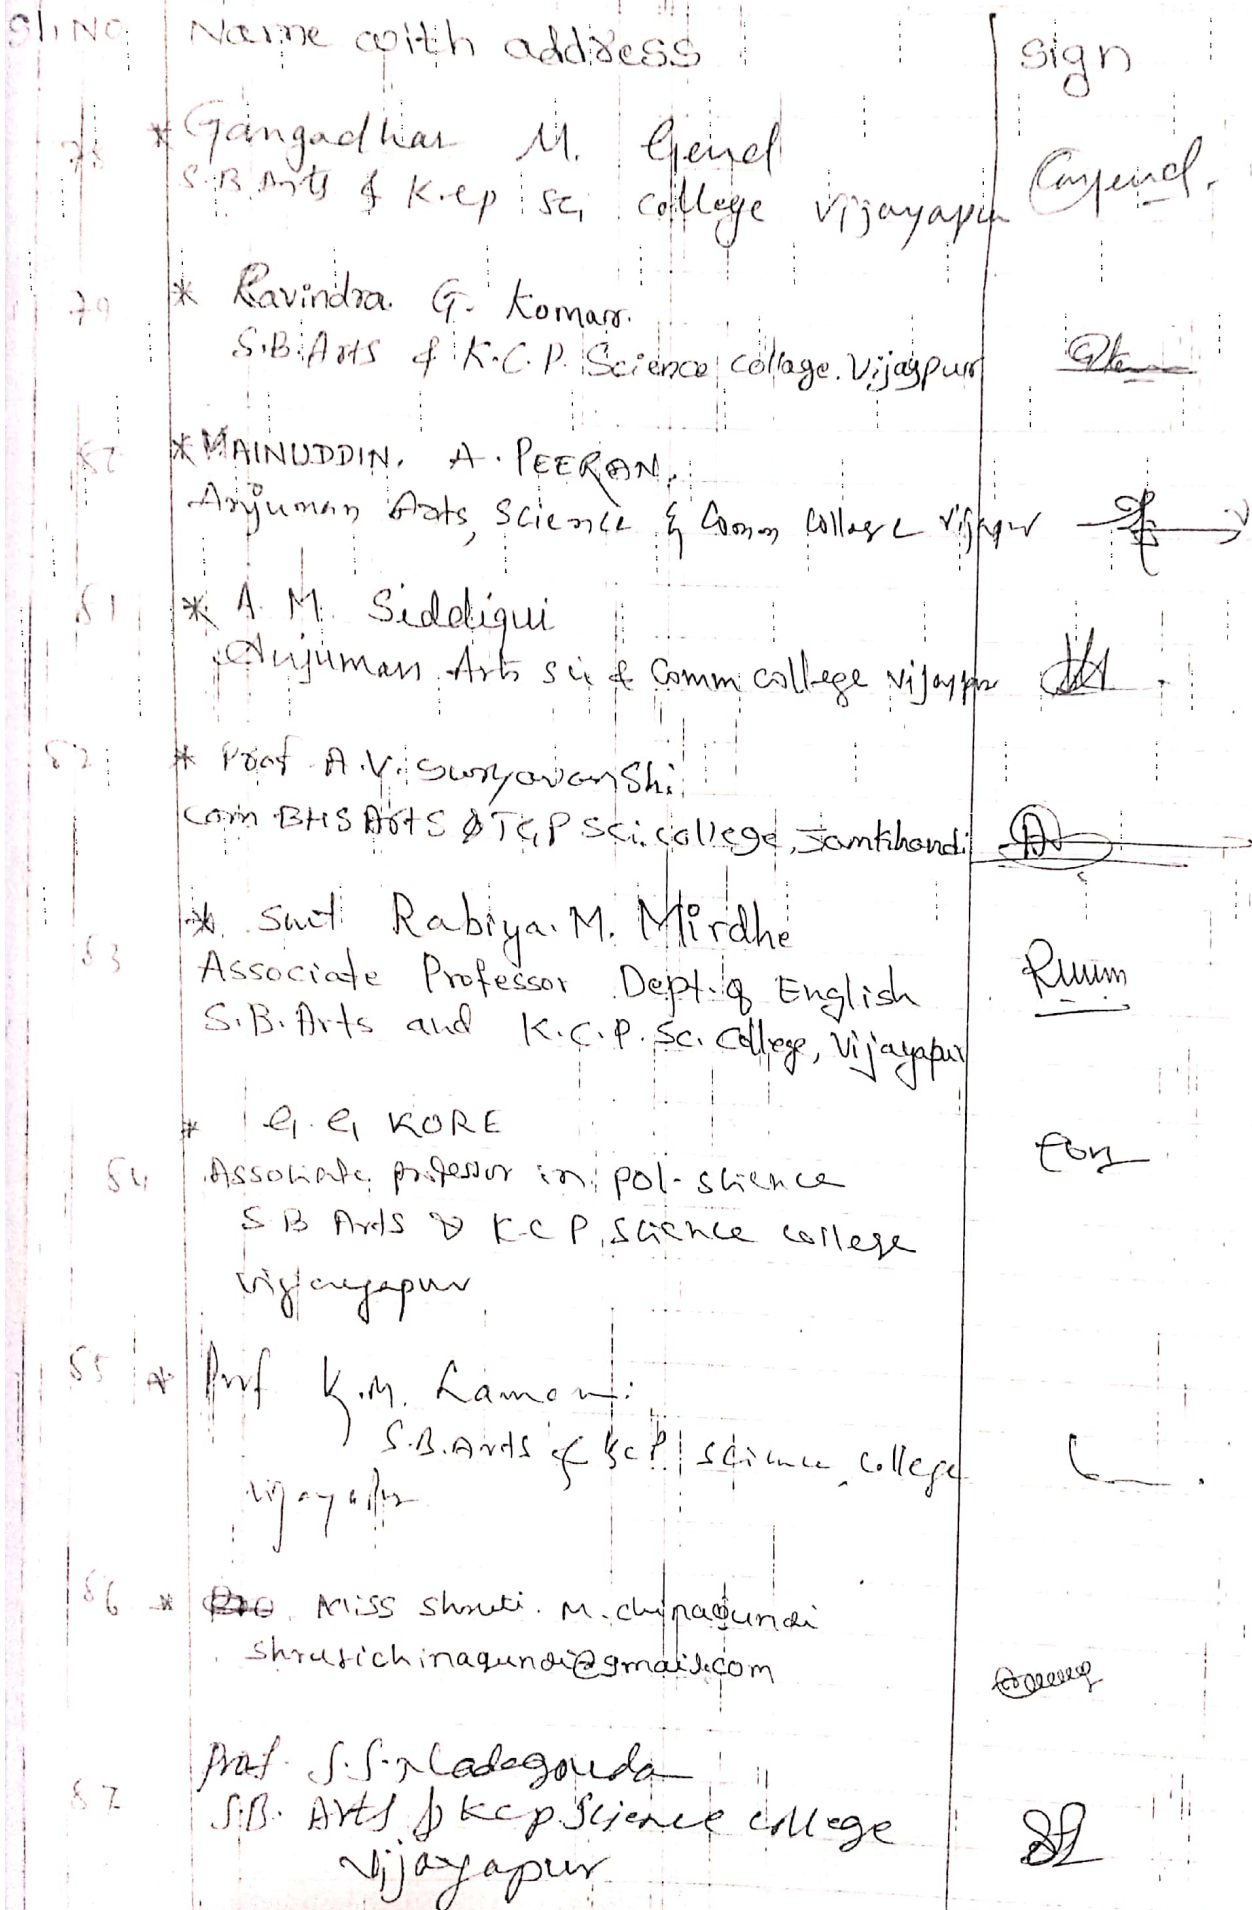 Sl. No. Name with address sign
78 * Gangadhar M. Gend
S.B. Arts & K.C.P Sc, college Vijayapur
79 * Ravindra. G. Komar.
S.B. Arts & K.C.P. Science collage. Vijaypur
* MAINUDDIN. A. PEERAN.
Anjuman Arts, Science & Comm College Vijapur
81 * A. M. Siddiqui
Anjuman Arts sci & Comm college Vijaypur
82 * Prof A.V. Suryavanshi
BHS Arts & TGP Sci. college, Jamkhandi
83 * Smt Rabiya. M. Mirdhe
Associate Professor Dept. of English
S.B. Arts and K.C.P. Sc. College, Vijayapur
84 * G. G KORE
Associate professor in pol-science
S B Arts & K C P, science college
Vijayapur
85 * Prof K.M. Lamani
S.B. Arts & KCP science college
Vijayapur
86 * Miss Shruti. M. chinagundi
shrutichinagundi@gmail.com
87 Prof. S.S. Nadagouda
S.B. Arts & KCP Science college
Vijayapur